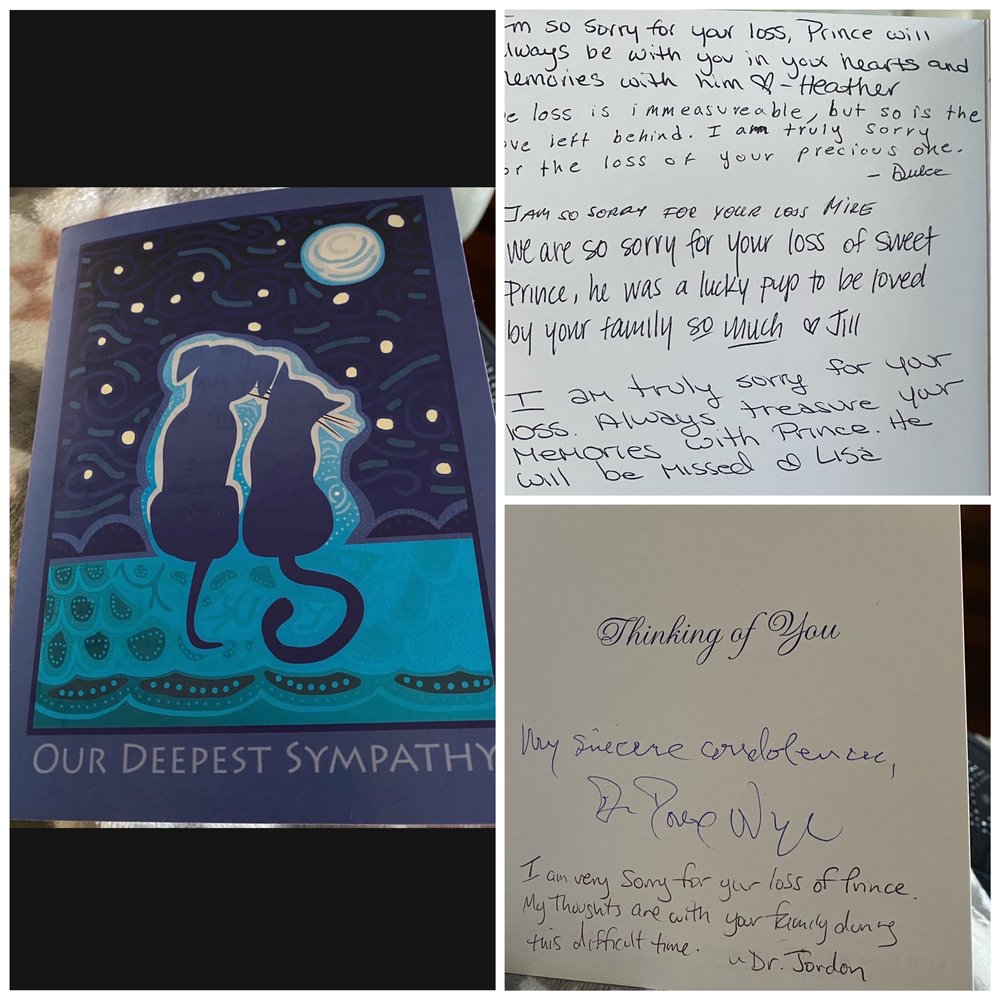 OUR DEEPEST SYMPATHY
I'm so sorry for your loss, Prince will
always be with you in your hearts and
memories with him ♡ - Heather
loss is immeasureable, but so is the
left behind. I am truly sorry
for the loss of your precious one.
- Dulce
I AM SO SORRY FOR YOUR LOSS MIRE
We are so sorry for your loss of sweet
Prince, he was a lucky pup to be loved
by your family so much ♡ Jill
I am truly sorry for your
loss. Always treasure your
Memories with Prince. He
will be missed Lisa
Thinking of You
My sincere condolences,
Dr
I am very sorry for your loss of Prince.
My thoughts are with your family during
this difficult time. ~ Dr. Jordon